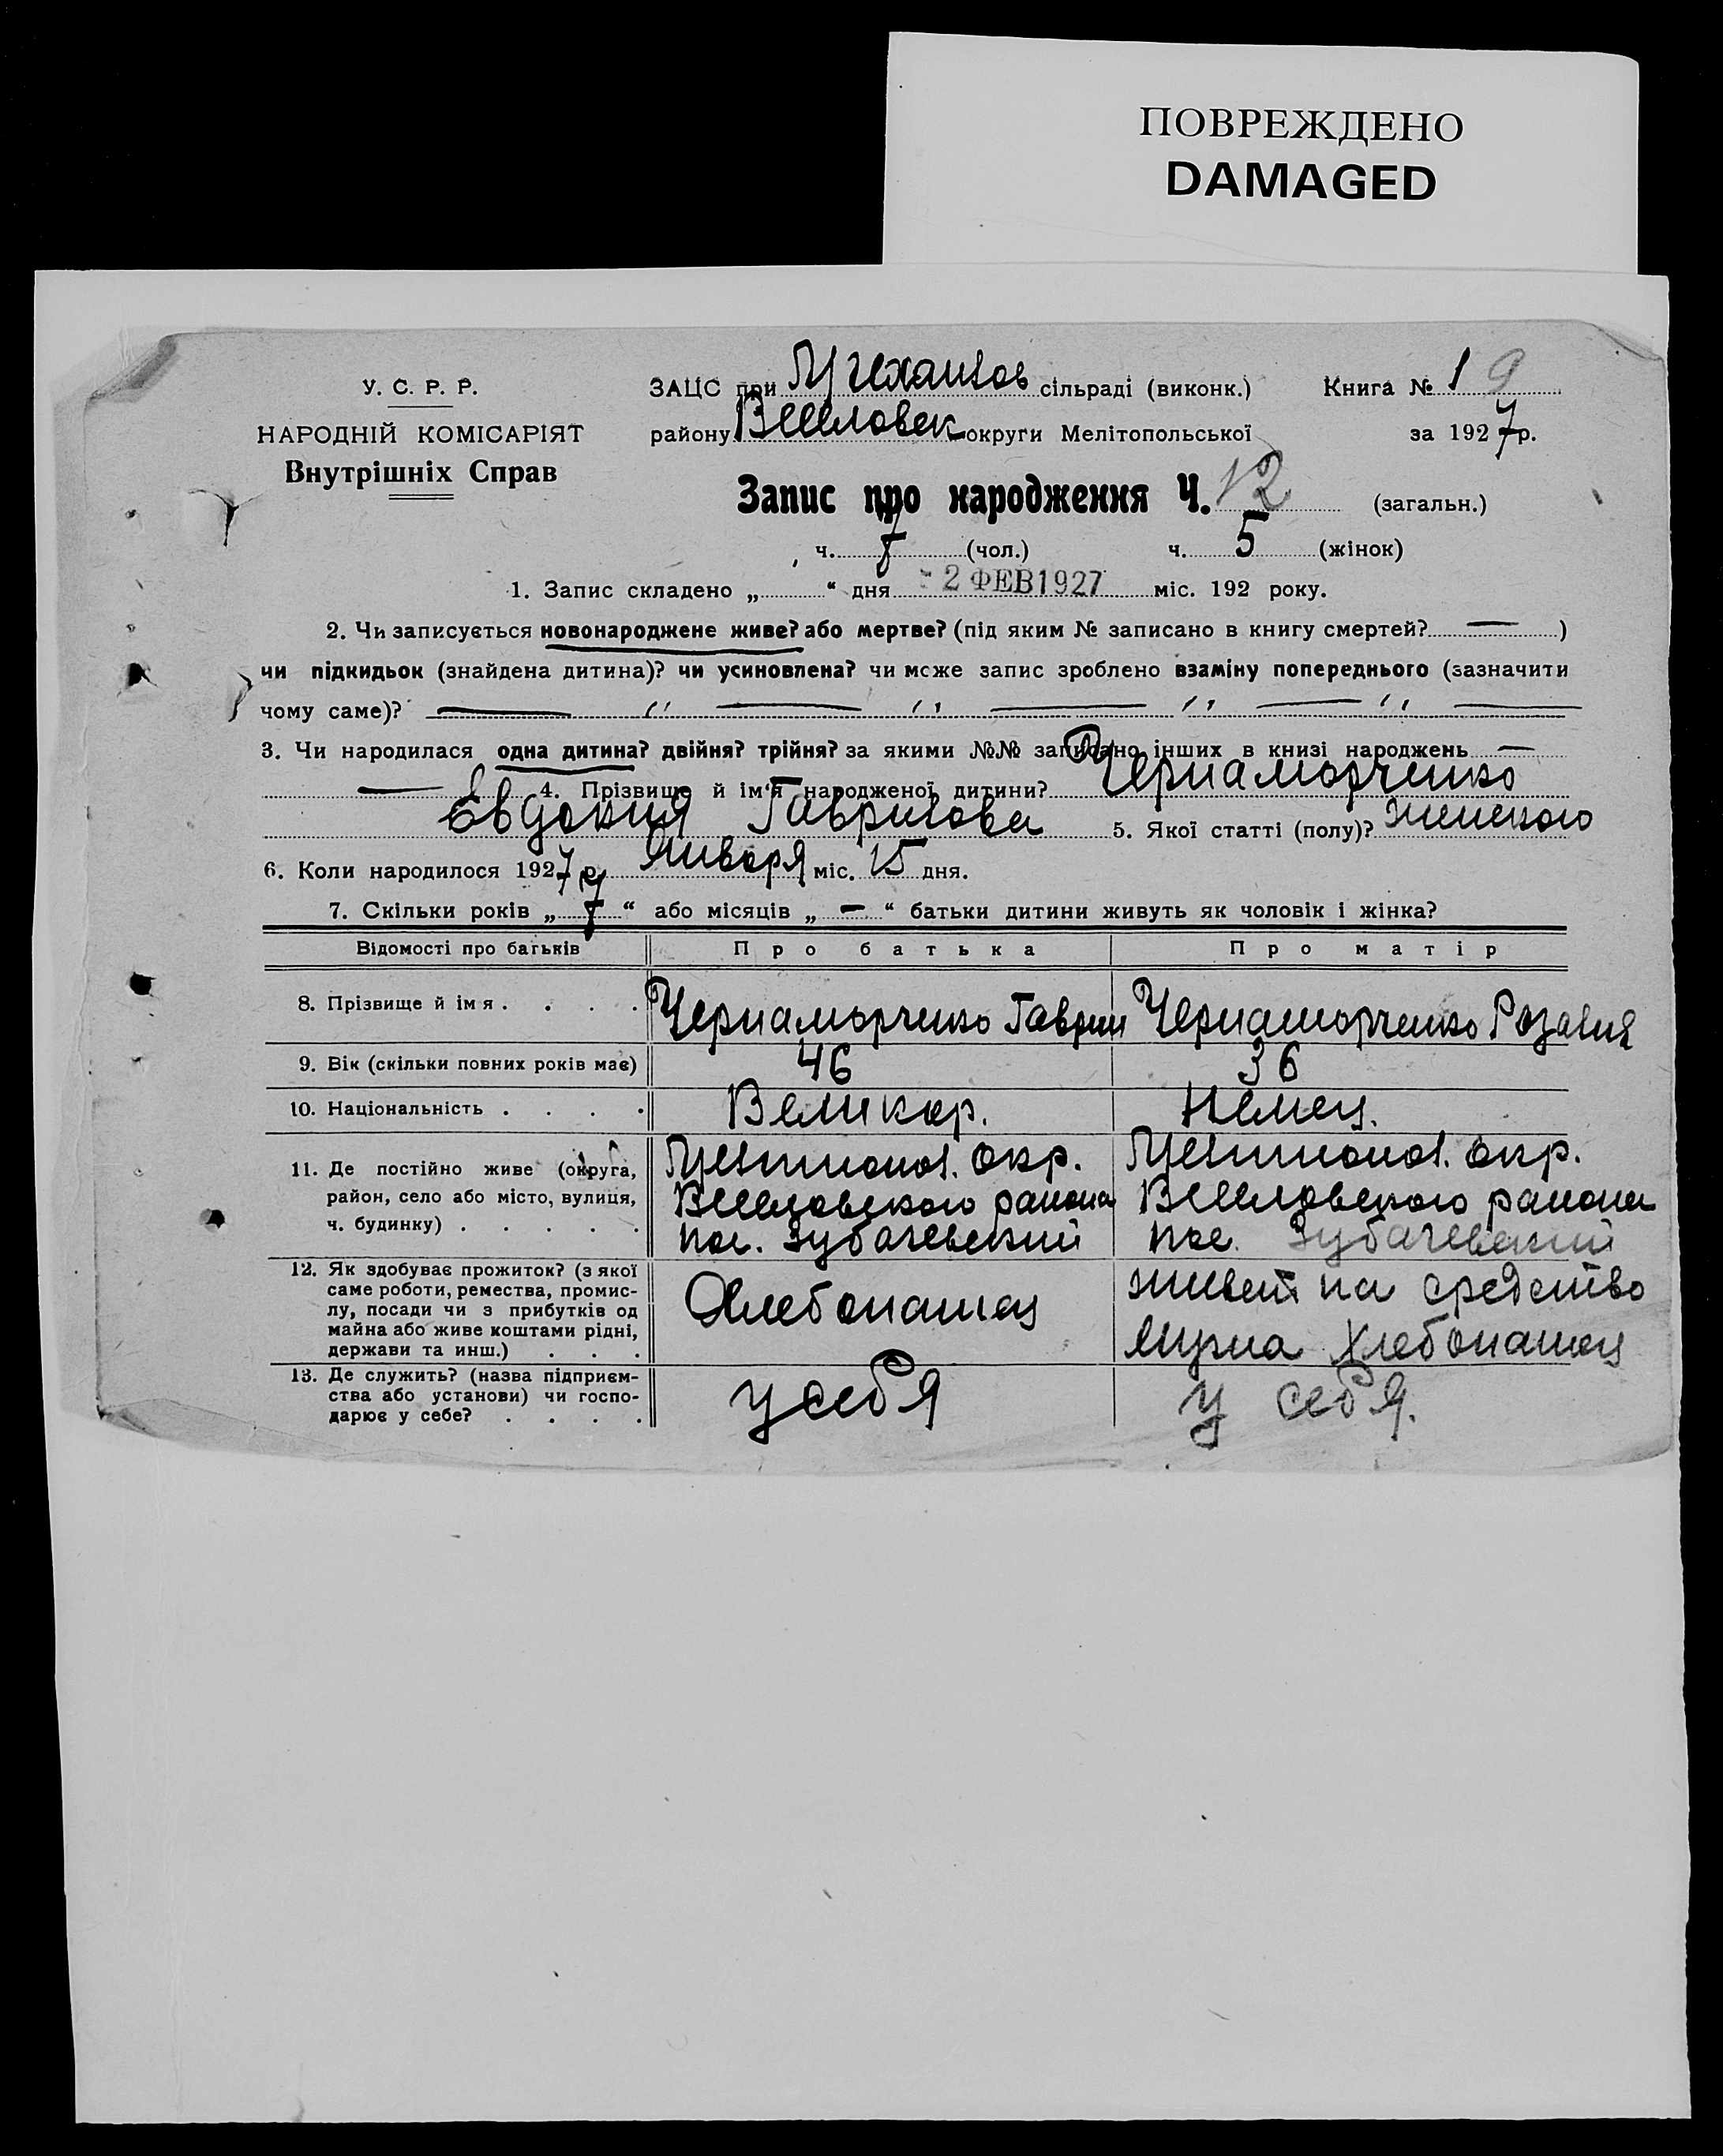 ПОВРЕЖДЕНО
DAMAGED
У. С. Р. Р.
НАРОДНІЙ КОМІСАРІЯТ
Внутрішніх Справ
ЗАЦС при сільраді (виконк.) Книга № 19
району Веселовск округи Мелітопольської за 1927 р.
Запис про народження Ч. 12 (загальн.)
ч. 7 (чол.) ч. 5 (жінок)
1. Запис складено „ “ дня - 2 ФЕВ 1927 міс. 192 року.
2. Чи записується новонароджене живе? або мертве? (під яким № записано в книгу смертей? — )
чи підкидьок (знайдена дитина)? чи усиновлена? чи може запис зроблено взаміну попереднього (зазначити
чому саме)? — " — " — " — " —
3. Чи народилася одна дитина? двійня? трійня? за якими №№ записано інших в книзі народжень —
— 4. Прізвище й ім'я народженої дитини? Чернаморченко
Евдокия Гаврилова 5. Якої статті (полу)? Женского
6. Коли народилося 1927 р. Января міс. 15 дня.
7. Скільки років „ 7 “ або місяців „ — “ батьки дитини живуть як чоловік і жінка?
Відомості про батьків Про батька Про матір
8. Прізвище й імя . . . . Чернаморченко Гаврил Чернаморченко Розалия
9. Вік (скільки повних років має) 46 36
10. Національність . . . . Великор. Немец.
11. Де постійно живе (округа, Мелитопол. окр. Мелитопол. окр.
район, село або місто, вулиця, Веселовского района Веселовского района
ч. будинку) . . . . . пос. Зубачевский пос. Зубачевский
12. Як здобуває прожиток? (з якої
саме роботи, ремества, промис-
лу, посади чи з прибутків од
майна або живе коштами рідні,
держави та инш.) . . .
Хлебопашец живет на средство
мужа Хлебопашец
13. Де служить? (назва підприєм-
ства або установи) чи госпо-
дарює у себе? . . . .
у себя у себя.